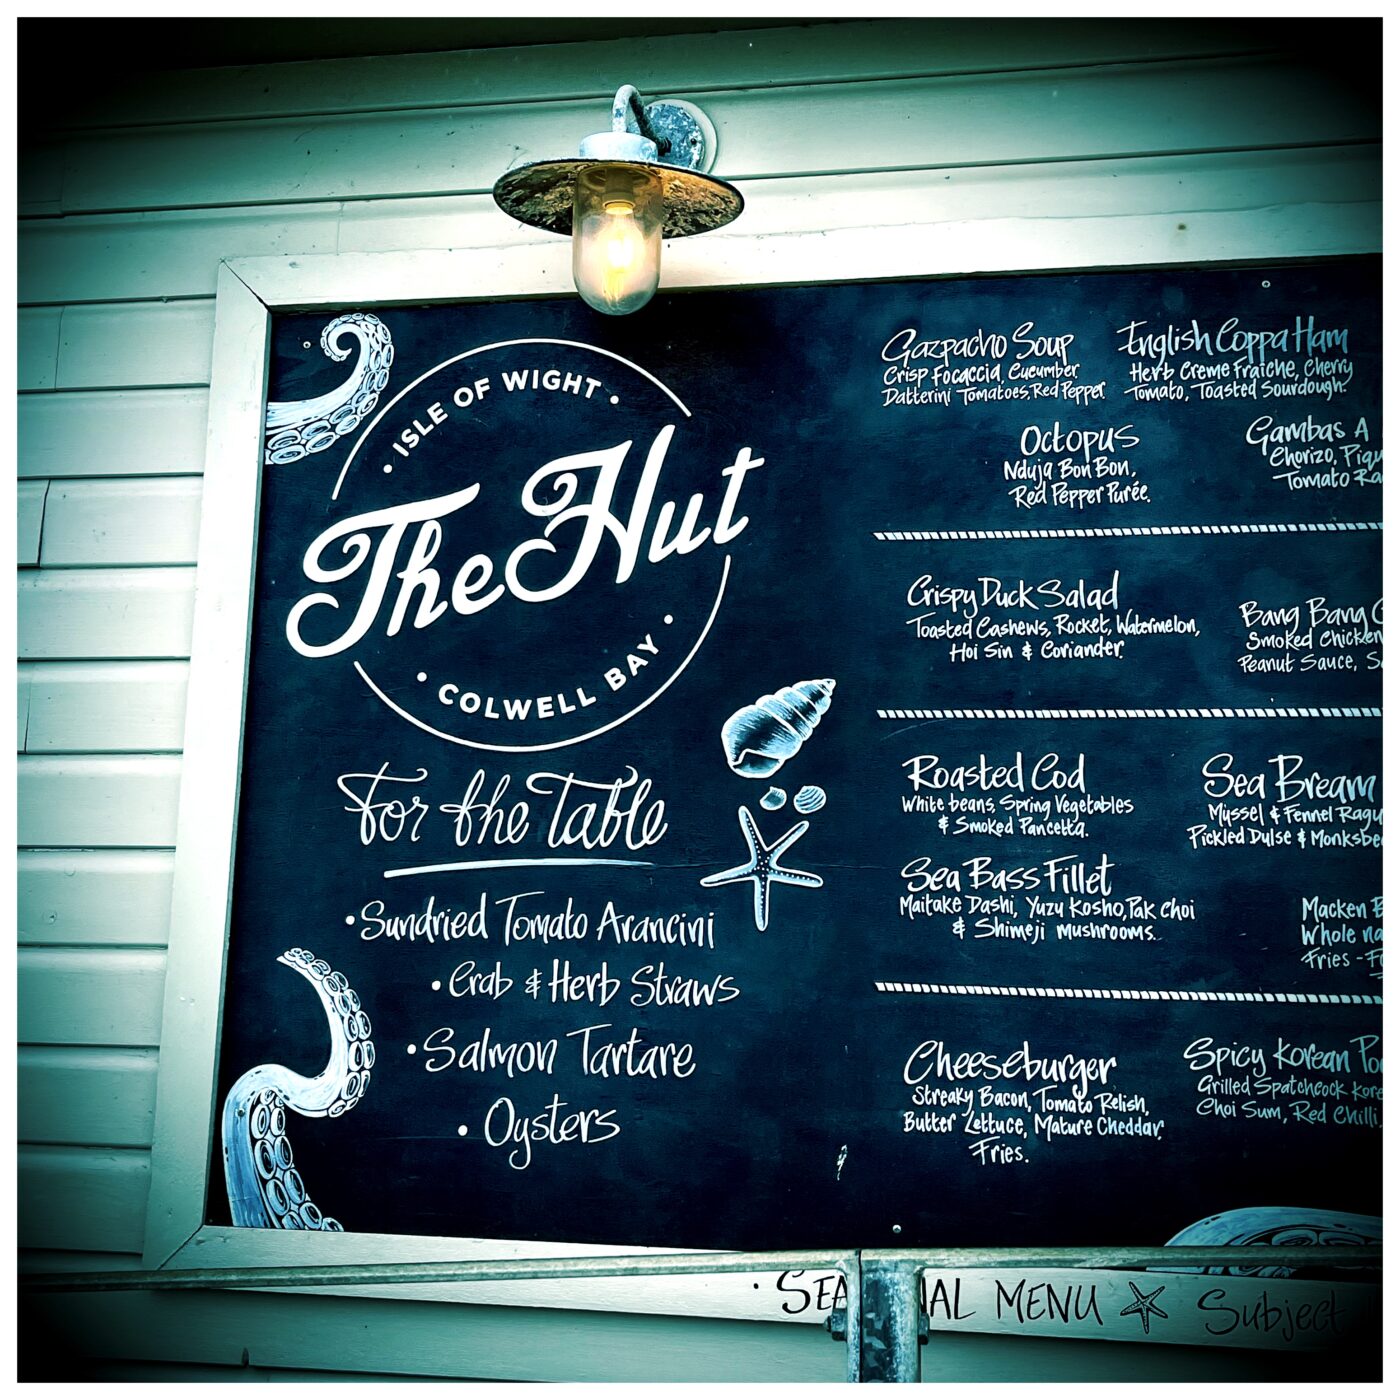 ISLE OF WIGHT
The Hut
COLWELL BAY
For the Table
• Sundried Tomato Arancini
• Crab & Herb Straws
• Salmon Tartare
• Oysters
Gazpacho Soup
Crisp Focaccia, Cucumber,
Datterini Tomatoes, Red Pepper
English Coppa Ham
Herb Creme Fraiche, Cherry
Tomato, Toasted Sourdough.
Octopus
Nduja Bon Bon,
Red Pepper Purée.
Gambas A
Chorizo,
Tomato
Crispy Duck Salad
Toasted Cashews, Rocket, Watermelon,
Hoi Sin & Coriander.
Bang Bang
Smoked Chicken
Peanut Sauce,
Roasted Cod
White beans, Spring Vegetables
& Smoked Pancetta.
Sea Bream
Mussel & Fennel
Pickled Dulse &
Sea Bass Fillet
Maitake Dashi, Yuzu Kosho, Pak Choi
& Shimeji mushrooms.
Macken
Whole
Fries -
Cheeseburger
Streaky Bacon, Tomato Relish,
Butter Lettuce, Mature Cheddar,
Fries.
Spicy Korean
Grilled Spatchcock
Choi Sum, Red Chilli,
MENU Subject